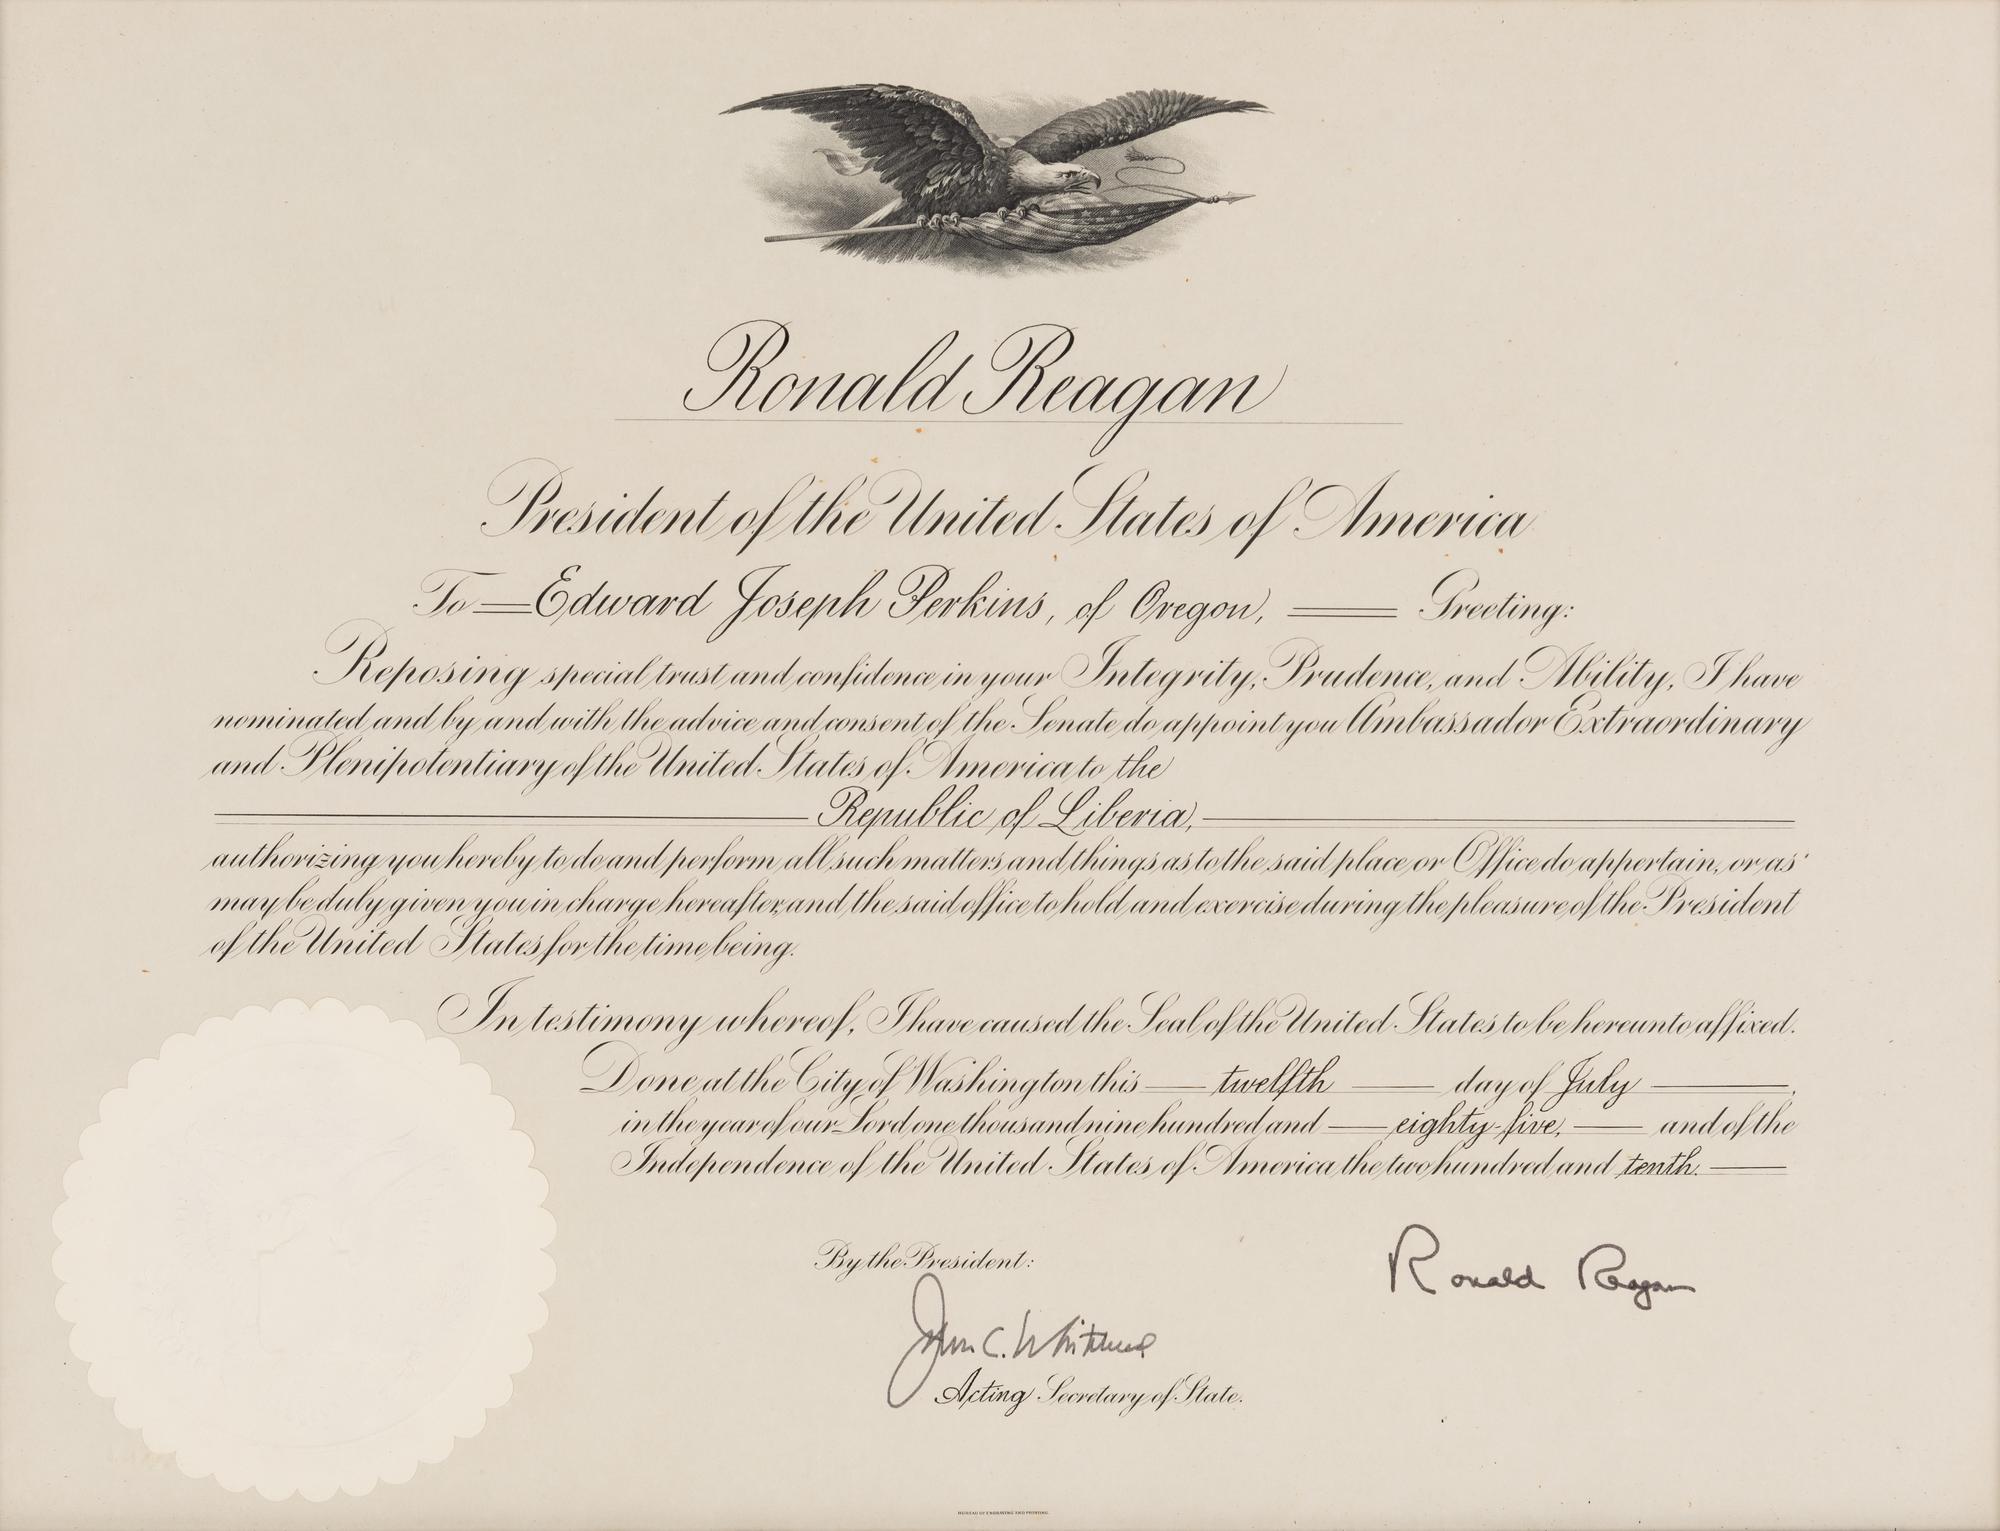 Ronald Reagan
President of the United States of America
To Edward Joseph Perkins, of Oregon, Greeting:
Reposing special trust and confidence in your Integrity, Prudence, and Ability, I have
nominated and by and with the advice and consent of the Senate do appoint you Ambassador Extraordinary
and Plenipotentiary of the United States of America to the
Republic of Liberia,
authorizing you hereby to do and perform all such matters and things as to the said place or Office do appertain, or as
may be duly given you in charge hereafter, and the said office to hold and exercise during the pleasure of the President
of the United States for the time being.
In testimony whereof, I have caused the Seal of the United States to be hereunto affixed.
Done at the City of Washington this twelfth day of July,
in the year of our Lord one thousand nine hundred and eighty-five, and of the
Independence of the United States of America the two hundred and tenth.
By the President:
Ronald Reagan
John C. Whitehead
Acting Secretary of State.
BUREAU OF ENGRAVING AND PRINTING